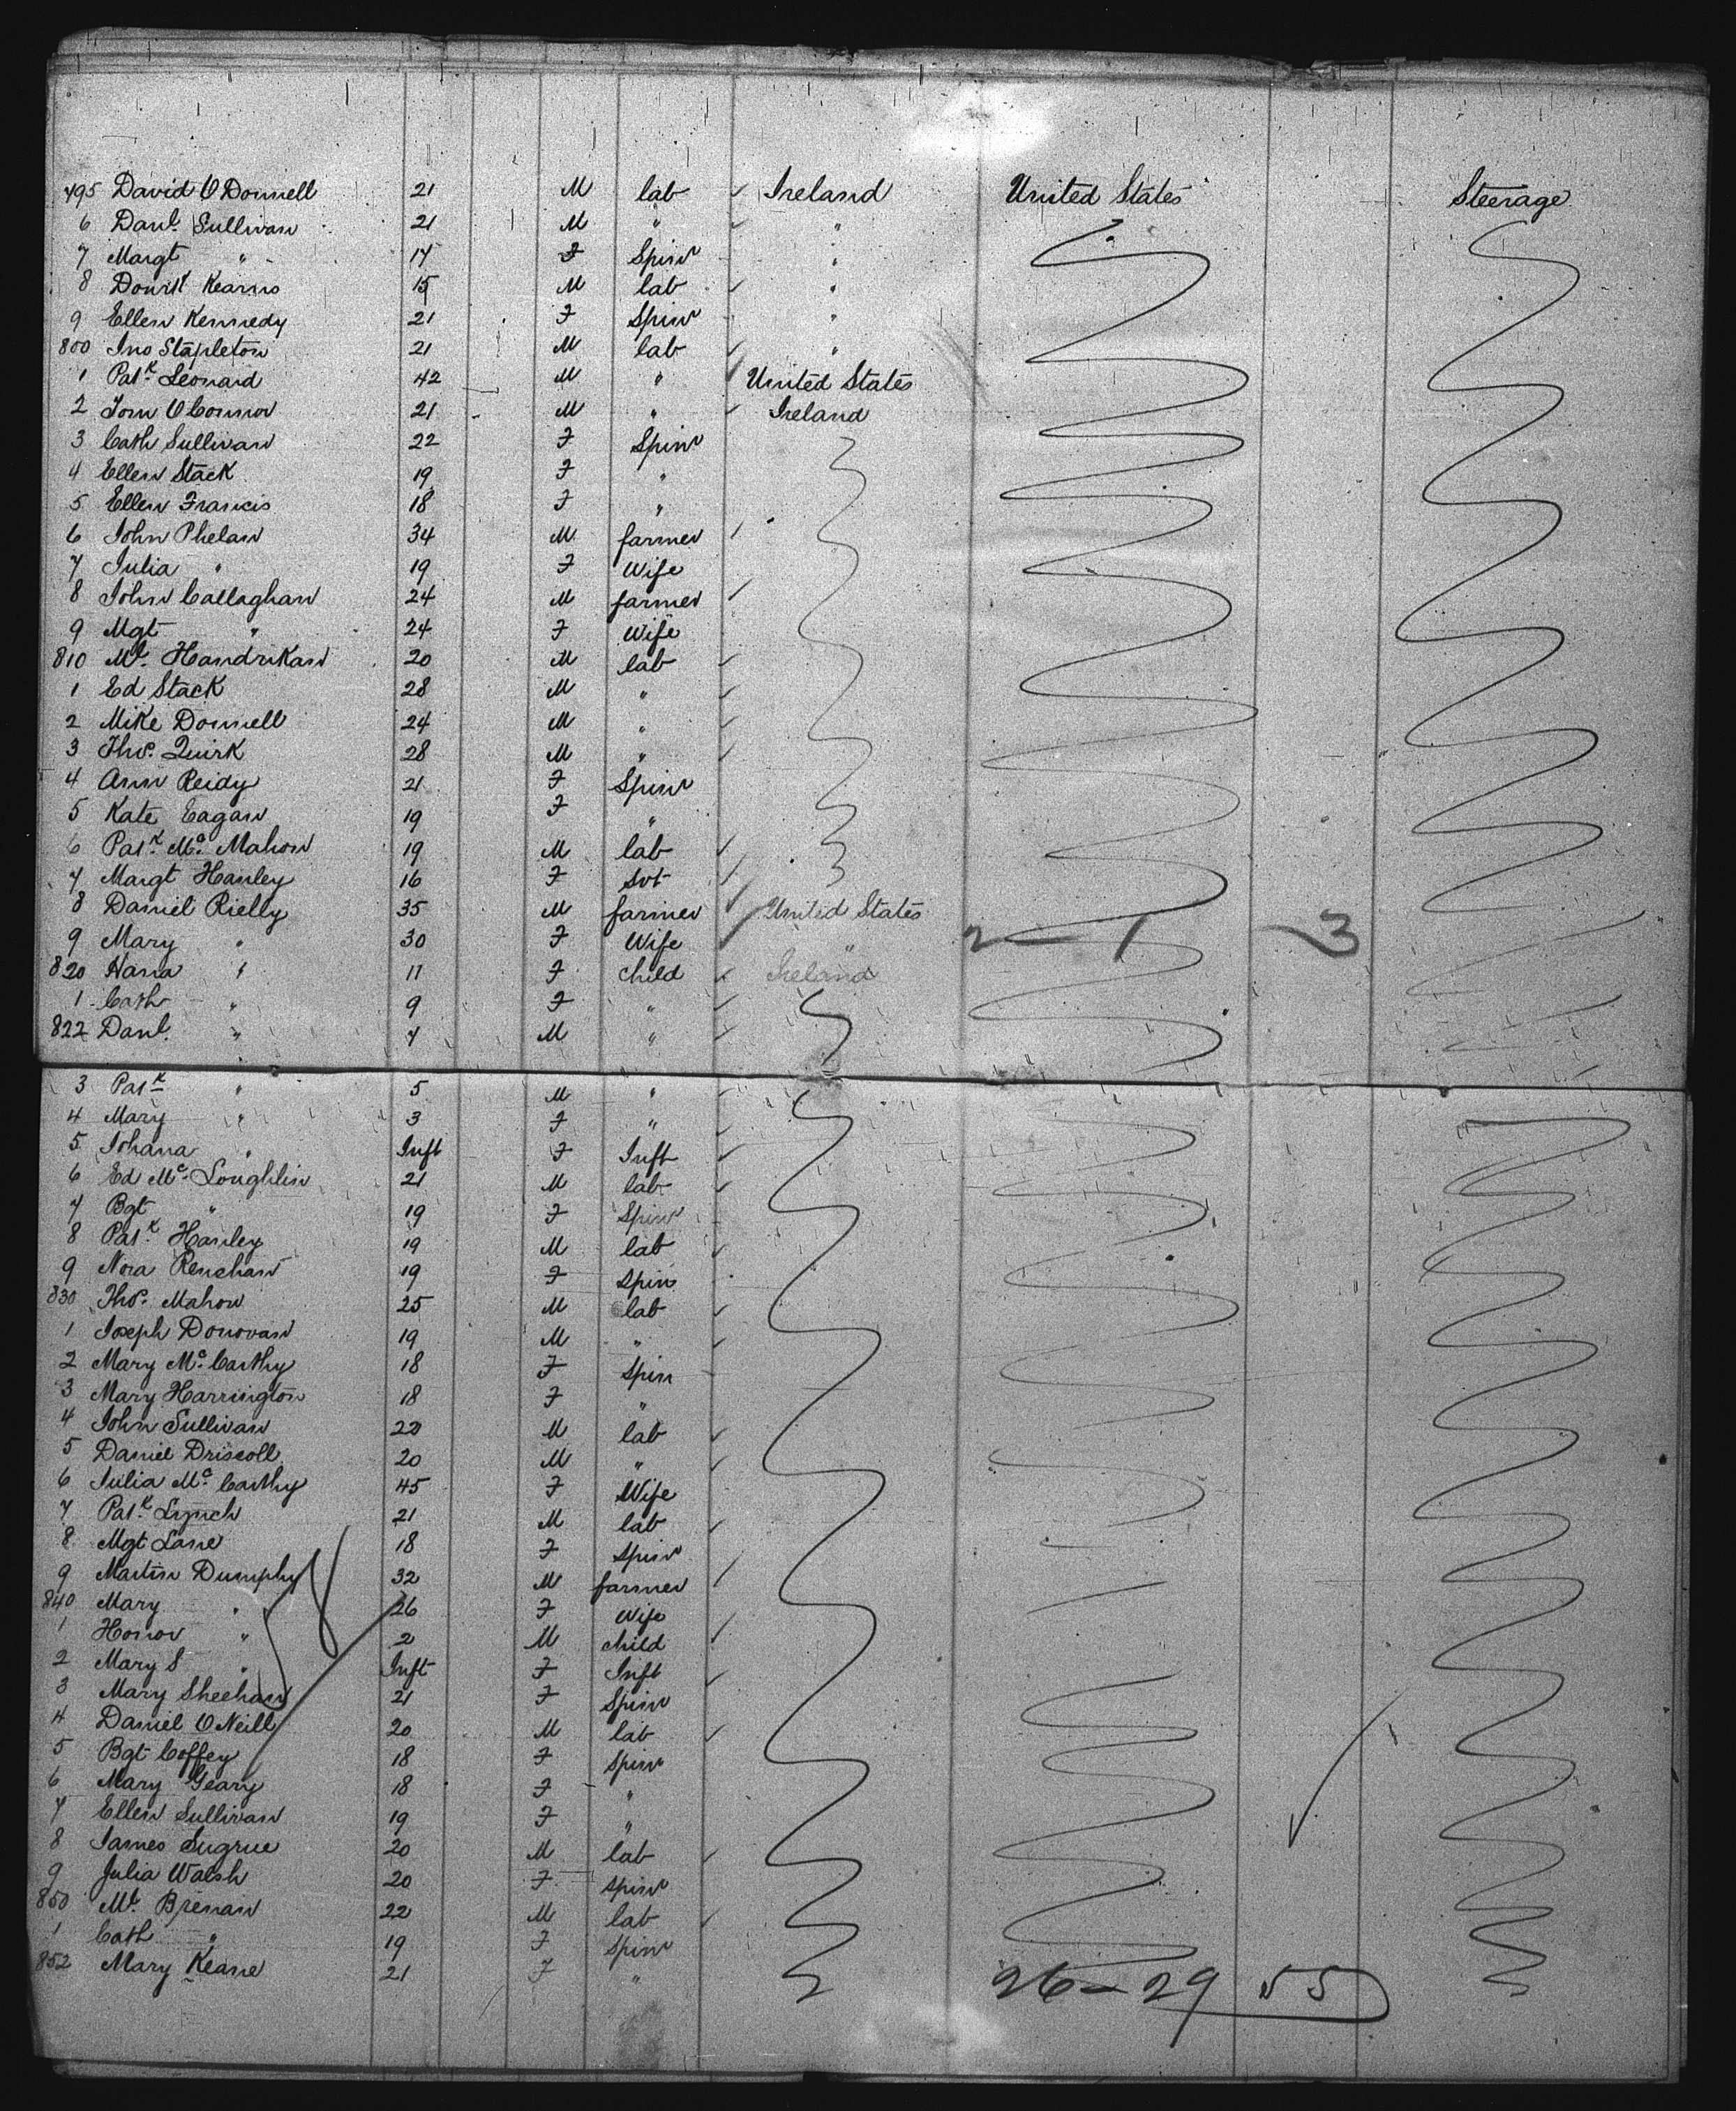 795 David O Donnell 21 M lab Ireland United States Steerage
6 Danl. Sullivan 21 M " "
7 Margt " 17 F Spinr "
8 Kearns 15 M lab "
9 Ellen Kennedy 21 F Spinr "
800 Jno Stapleton 21 M lab "
1 Patk. Leonard 42 M " United States
2 Tom O Connor 21 M " Ireland
3 Cath Sullivan 22 F Spinr
4 Ellen Stack 19 F "
5 Ellen Francis 18 F "
6 John Phelan 34 M farmer
7 Julia " 19 F Wife
8 John Callaghan 24 M farmer
9 Mgt " 24 F Wife
810 Ml. Handrikan 20 M lab
1 Ed Stack 28 M "
2 Mike Donnell 24 M "
3 Thos. Quirk 28 M "
4 Ann Reidy 21 F Spinr
5 Kate Eagan 19 F "
6 Patk. Mc. Mahon 19 M lab
7 Margt Hanley 16 F Svt
8 Daniel Rielly 35 M farmer United States
9 Mary " 30 F Wife " 2 - 1 3
820 Hana " 11 F Child Ireland
1 Cath " 9 F "
822 Danl. " 7 M "
3 Patk " 5 M "
4 Mary " 3 F "
5 Johana " Inft F Inft
6 Ed Mc. Loughlin 21 M lab
7 Bgt " 19 F Spinr
8 Patk. Hanley 19 M lab
9 Nora Renehan 19 F Spin
830 Thos. Mahon 25 M lab
1 Joseph Donovan 19 M "
2 Mary Mc. Carthy 18 F Spin
3 Mary Harrington 18 F "
4 John Sullivan 22 M lab
5 Daniel Driscoll 20 M "
6 Julia Mc. Carthy 45 F Wife
7 Patk. Lynch 21 M lab
8 Mgt Lane 18 F Spinr
9 Martin Dumphy 32 M farmer
840 Mary " 26 F Wife
1 Honor " 2 M child
2 Mary S " Inft F Inft
3 Mary Sheehan 21 F Spinr
4 Daniel O Neill 20 M lab
5 Bgt Coffey 18 F Spinr
6 Mary Geary 18 F "
7 Ellen Sullivan 19 F "
8 James Sugrue 20 M lab
9 Julia Walsh 20 F Spinr
850 Ml. Brenan 22 M lab
1 Cath " 19 F Spinr
852 Mary Keane 21 F "
26 - 29 55